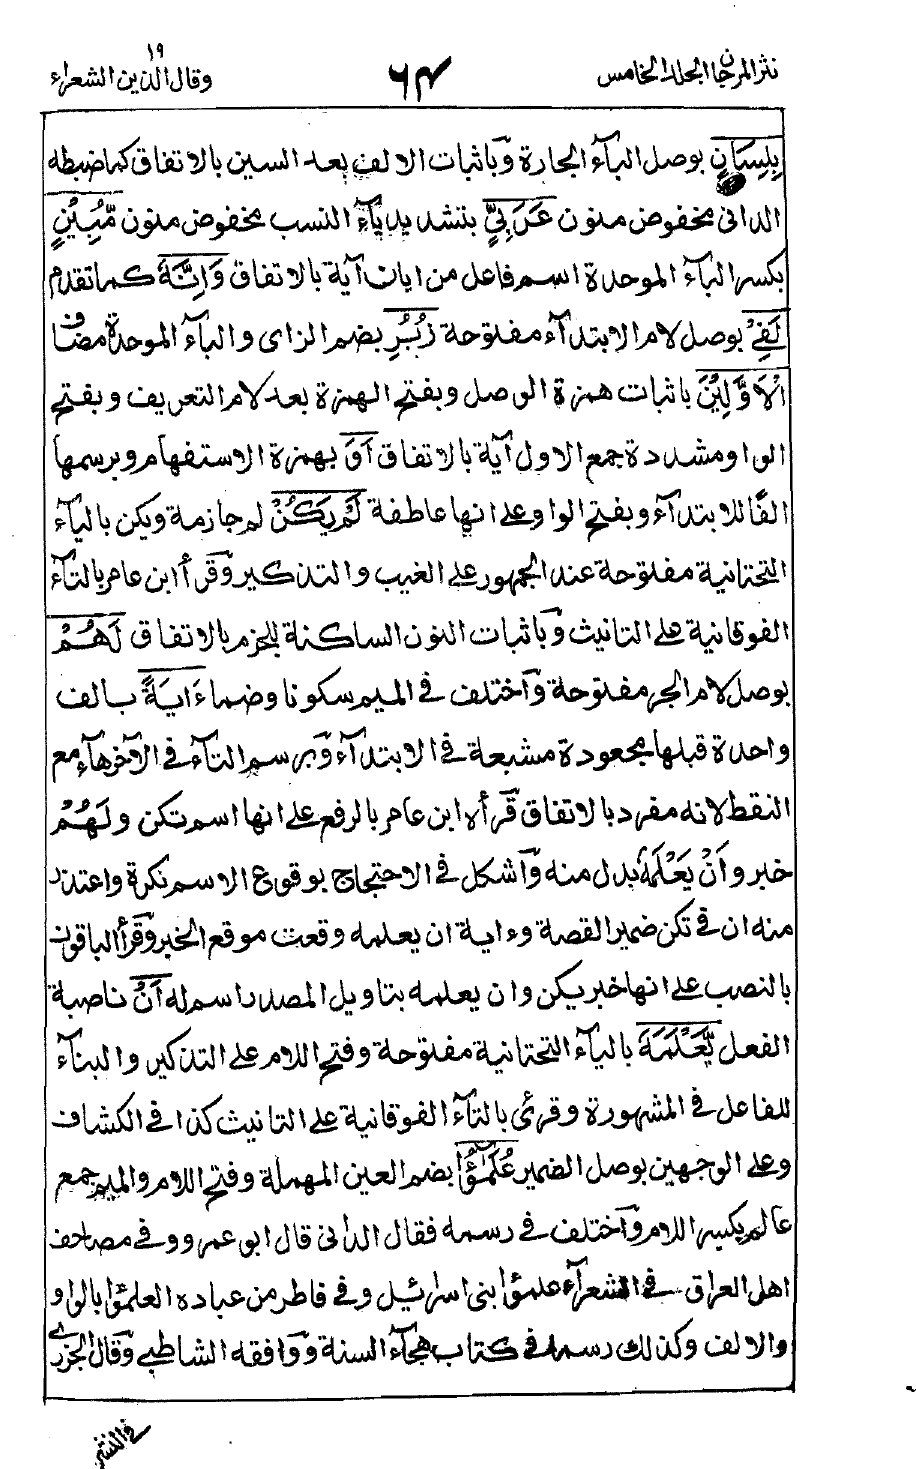 نثر المرجان المجلد الخامس
٦٣
وقال الذين ١٩ الشعراء
بِلِسَانٍ بوصل البآء الجارة وباثبات الالف بعد السين بالاتفاق كما ضبطه
الدانى مخفوض منون عَرَبِيٍّ بتشديد يآء النسب مخفوض منون مُّبِيْنٍ
بكسر البآء الموحدة اسم فاعل من ابان آية بالاتفاق وَاِنَّهٗ كما تقدم
لَفِيْ بوصل لام الابتدآء مفتوحة زُبُرِ بضم الزاى والبآء الموحدة مضاف
الْاَوَّلِيْنَ باثبات همزة الوصل وبفتح الهمزة بعد لام التعريف وبفتح
الواو مشددة جمع الاول آية بالاتفاق اَوَ بهمزة الاستفهام وبرسمها
الفا للابتدآء وبفتح الواو على انها عاطفة لَمْ يَكُنْ لم جازمة ويكن باليآء
التحتانية مفتوحة عند الجمهور على الغيب والتذكير وقرأ ابن عامر بالتآء
الفوقانية على التانيث وباثبات النون الساكنة للجزم بالاتفاق لَهُمْ
بوصل لام الجر مفتوحة وآختلف فى الميم سكونا وضما ءَايَةً بالف
واحدة قبلها مجعودة مشبعة فى الابتدآء وبرسم التآء فى الآخر هآء مع
النقط لانه مفرد بالاتفاق قرأ ابن عامر بالرفع على انها اسم تكن ولَهُمْ
خبر وأَنْ يَعْلَمَهٗ بدل منه وآشكل فى الاحتجاج بوقوع الاسم نكرة واعتذر
منه ان فى تكن ضمير القصة وءاية ان يعلمه وقعت موقع الخبر وقرأ الباقون
بالنصب على انها خبر يكن وان يعلمه بتاويل المصدر اسم له اَنْ ناصبة
الفعل يَّعْلَمَهٗ باليآء التحتانية مفتوحة وفتح اللام على التذكير والبنآء
للفاعل فى المشهورة وقرئ بالتآء الفوقانية على التانيث كذا فى الكشاف
وعلى الوجهين بوصل الضمير عُلَمٰٓؤُا بضم العين المهملة وفتح اللام والميم جمع
عالم بكسر اللام وآختلف فى رسمه فقال الدانى قال ابو عمرو وفى مصاحف
اهل العراق فى الشعرآء علمٰؤا بنى اسرائيل وفى فاطر من عباده العلمٰؤا بالواو
والالف وكذلك رسما فى كتاب هجآء السنة ووافقه الشاطبى وقال الجزرى
فى النشر